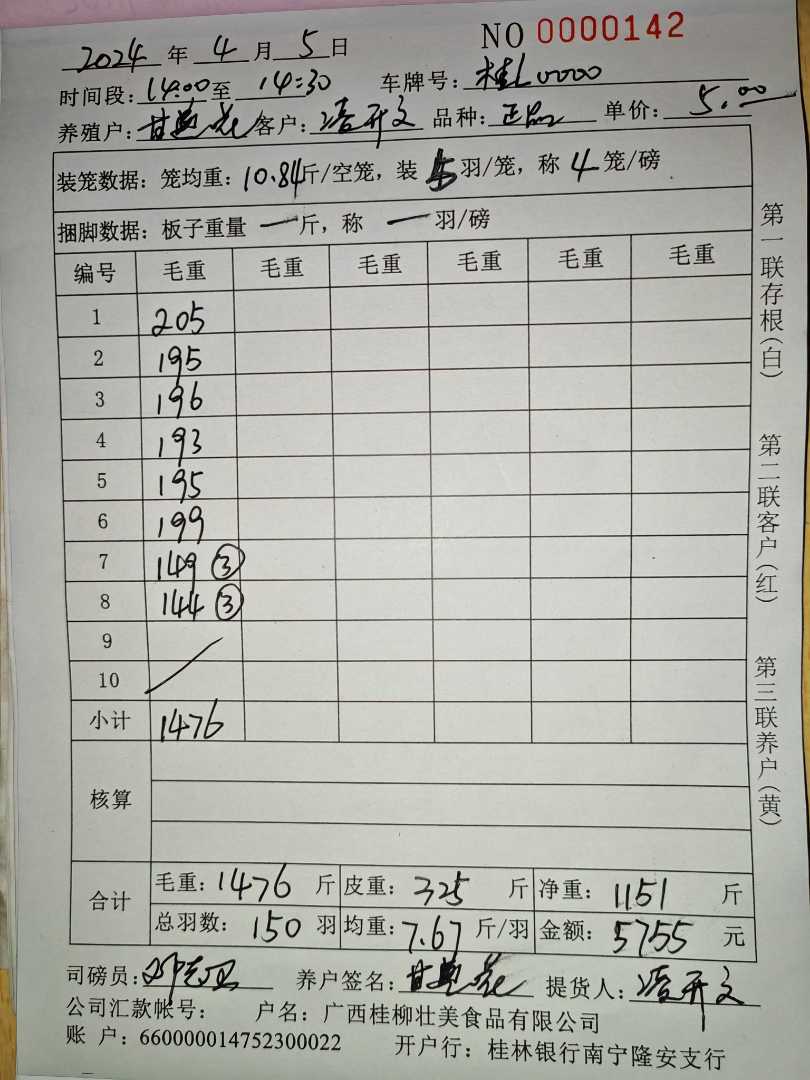 NO 0000142
2024 年 4 月 5 日
时间段: 14:00 至 14:30 车牌号: 桂L00000
养殖户: 甘 花 客户: 凌开文 品种: 正品 单价: 5.00
装笼数据: 笼均重: 10.84斤/空笼, 装 5 羽/笼, 称 4 笼/磅
捆脚数据: 板子重量 一 斤, 称 一 羽/磅
编号 毛重 毛重 毛重 毛重 毛重 毛重
1 205
2 195
3 196
4 193
5 195
6 199
7 149 ③
8 144 ③
9
10
小计 1476
核算
合计 毛重: 1476 斤 皮重: 325 斤 净重: 1151 斤
总羽数: 150 羽 均重: 7.67 斤/羽 金额: 5755 元
司磅员: 养户签名: 甘 花 提货人: 凌开文
公司汇款帐号: 户名: 广西桂柳壮美食品有限公司
账 户: 660000014752300022 开户行: 桂林银行南宁隆安支行
第一联存根(白) 第二联客户(红) 第三联养户(黄)